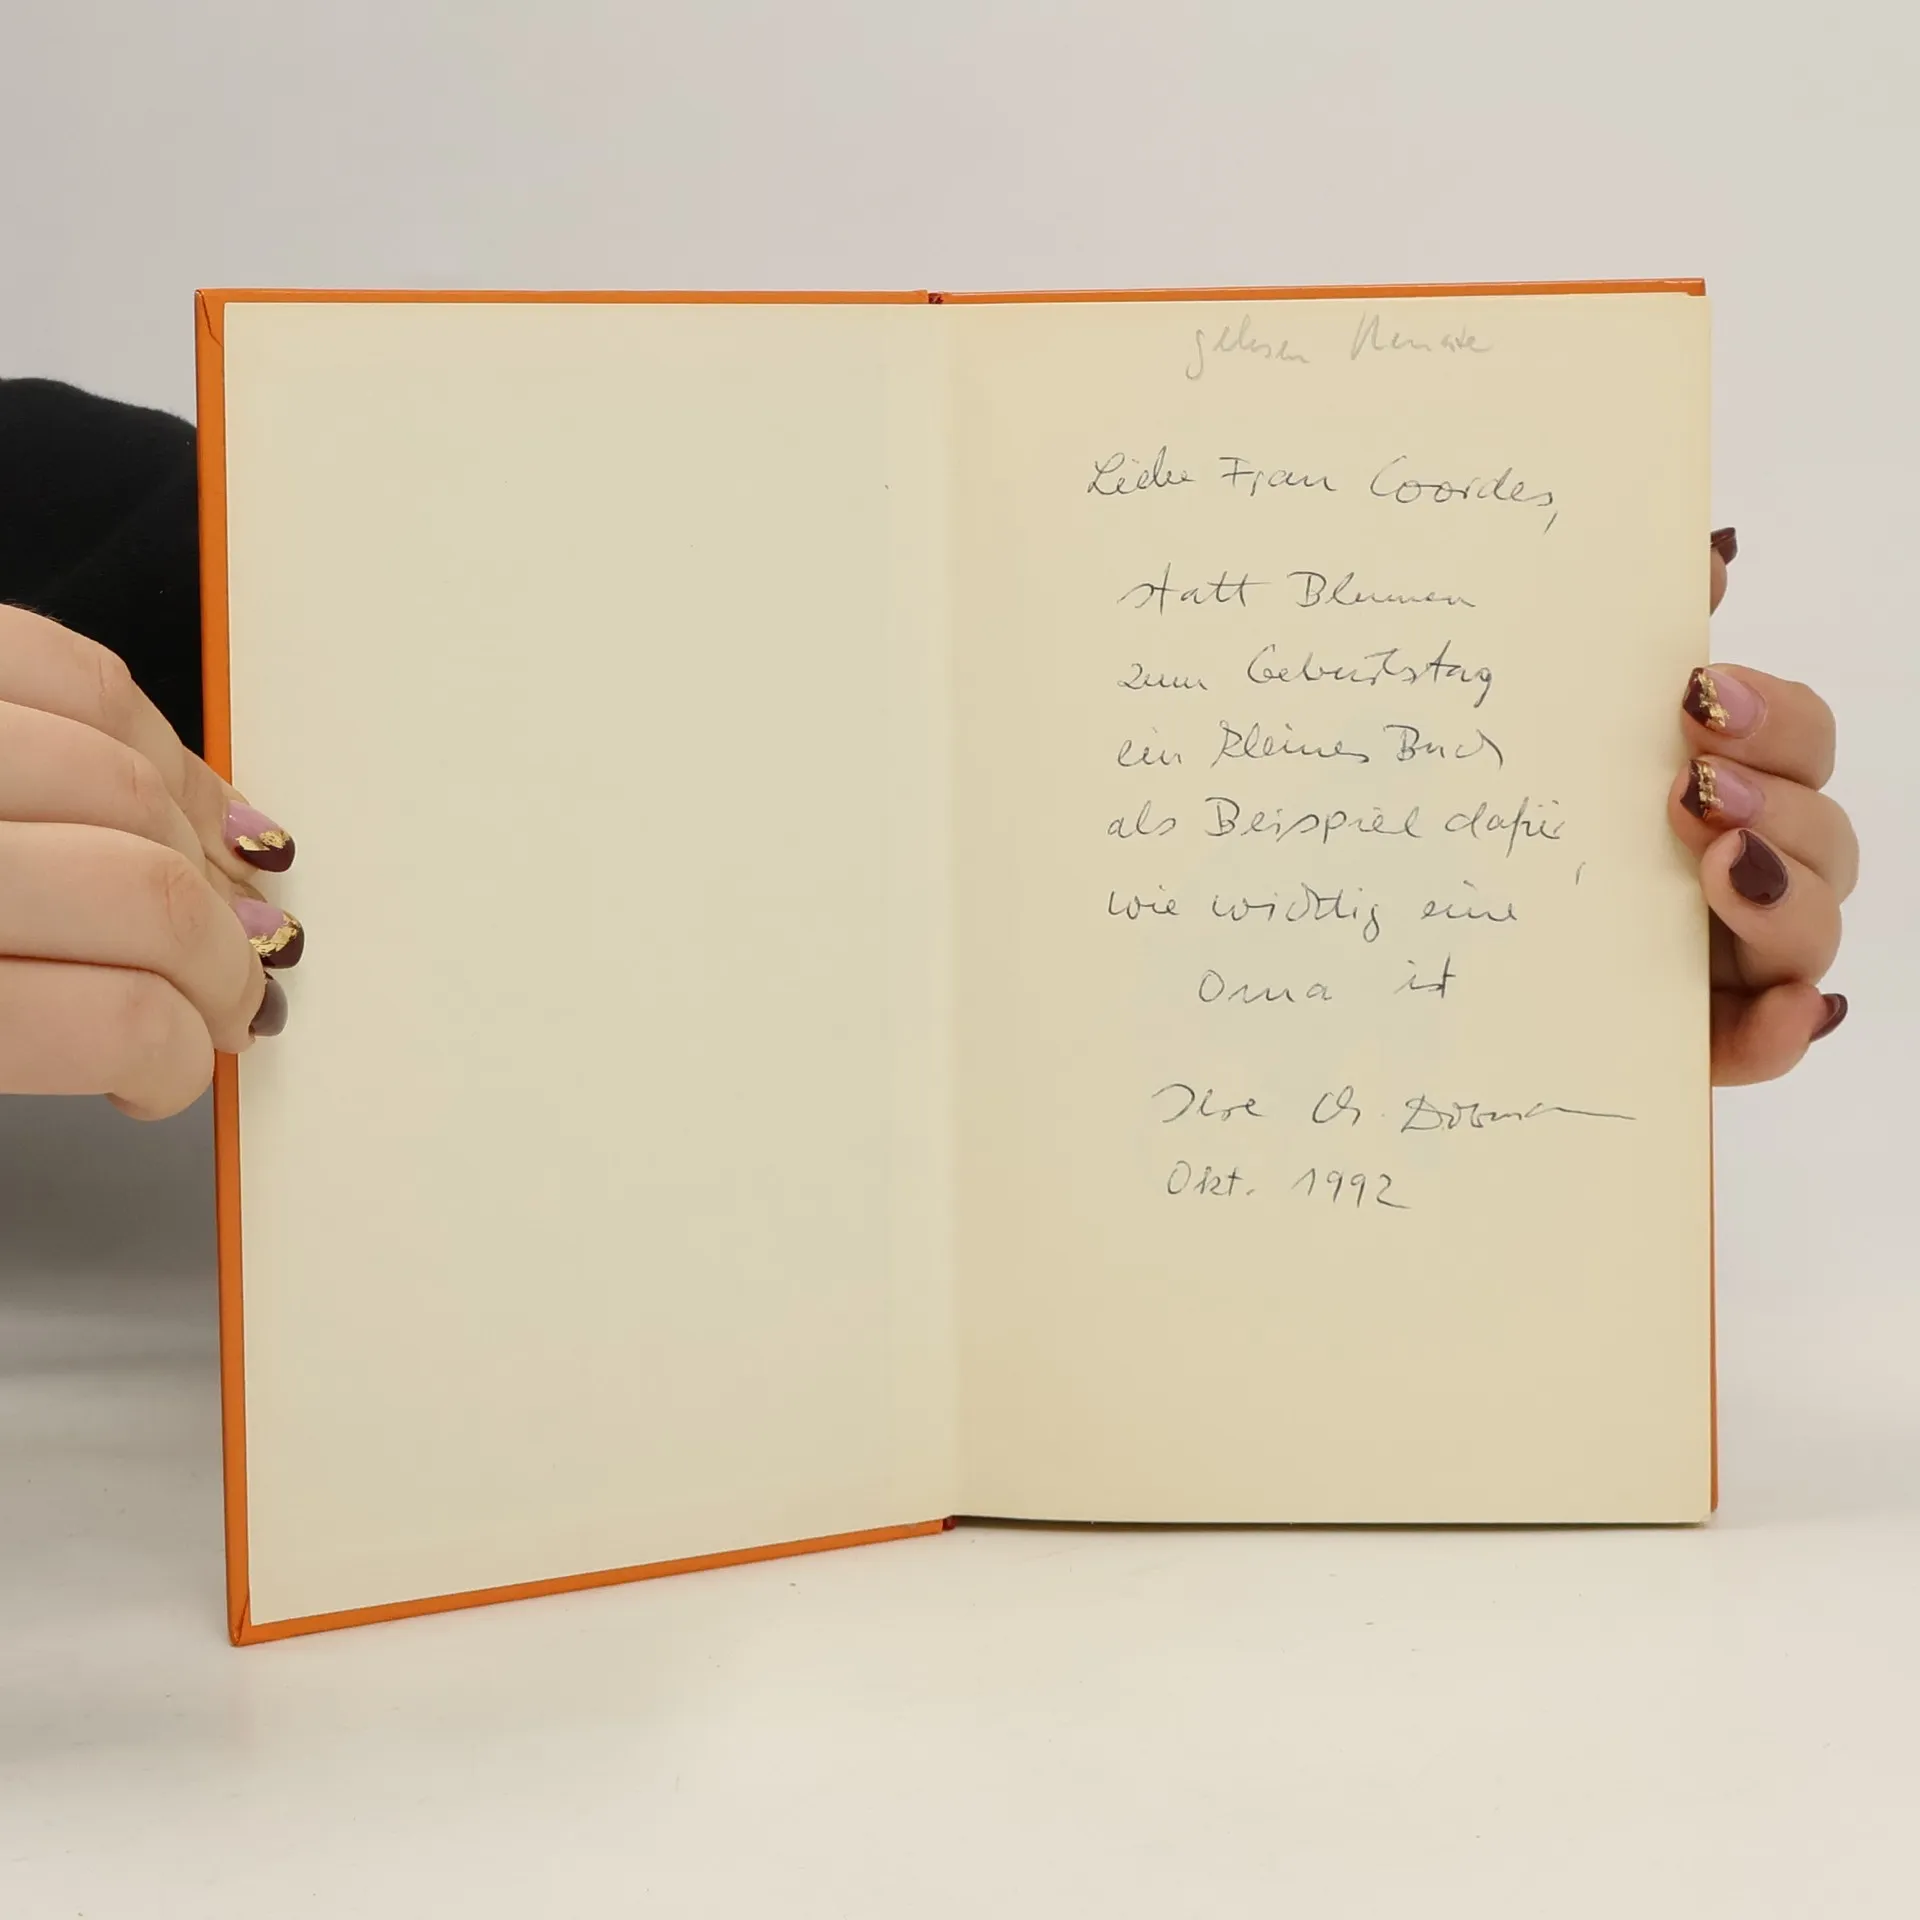 gelesen Renate
Liebe Frau Coordes,
statt Blumen
zum Geburtstag
ein kleines Buch
als Beispiel dafür,
wie wichtig eine
Oma ist
Ihre Ch.
Okt. 1992